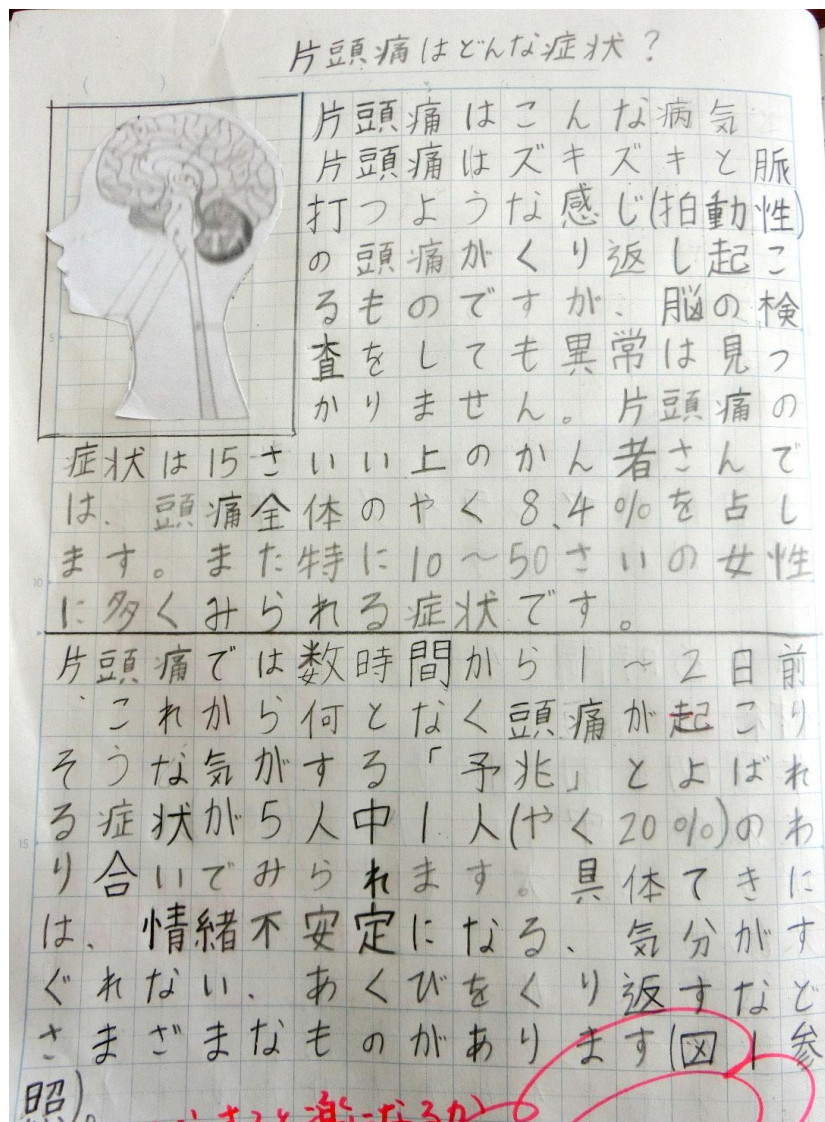 片頭痛はどんな症状?
片頭痛はこんな病気
片頭痛はズキズキと脈
打つような感じ(拍動性)
の頭痛がくり返し起こ
るものですが、脳の検
査をしても異常は見つ
かりません。片頭痛の
症状は15さいい上のかん者さんで
は、頭痛全体のやく8.4%を占し
ます。また特に10〜50さいの女性
に多くみられる症状です。
片頭痛では数時間から1〜2日前
、これから何となく頭痛が起こり
そうな気がする「予兆」とよばれ
る症状が5人中1人(やく20%)のわ
り合いでみられます。具体てきに
は、情緒不安定になる、気分がす
ぐれない、あくびをくり返すなど
さまざまなものがあります(図1参
照)。